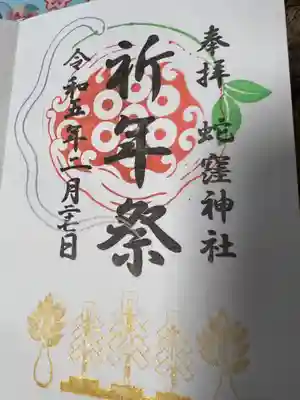 奉拝 蛇窪神社
祈年祭
令和五年二月二十七日